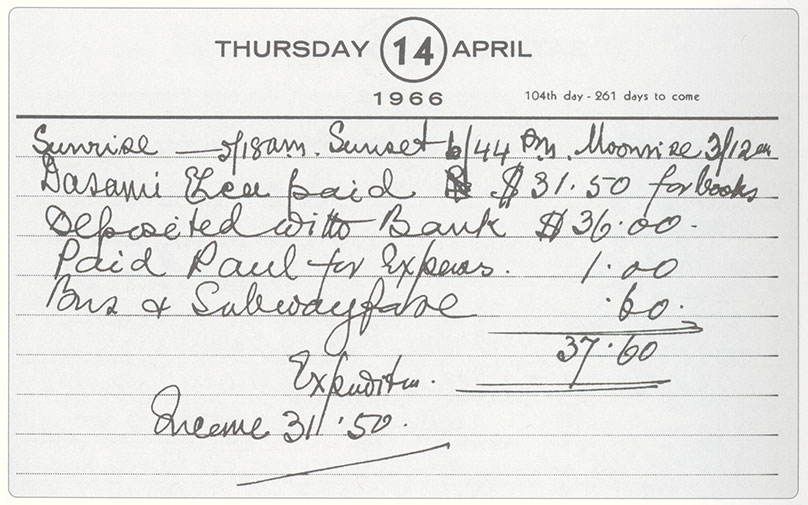 THURSDAY 14 APRIL
1966
104th day - 261 days to come
Sunrise — 5/18 am. Sunset 6/44 Pm. Moonrise 3/12 am
Dasami paid $31.50 for books
Deposited with Bank $36.00.
Paid Paul for Expens. 1.00
Bus & Subwayfare .60.
37.60
Expenditur.
Income 31.50.